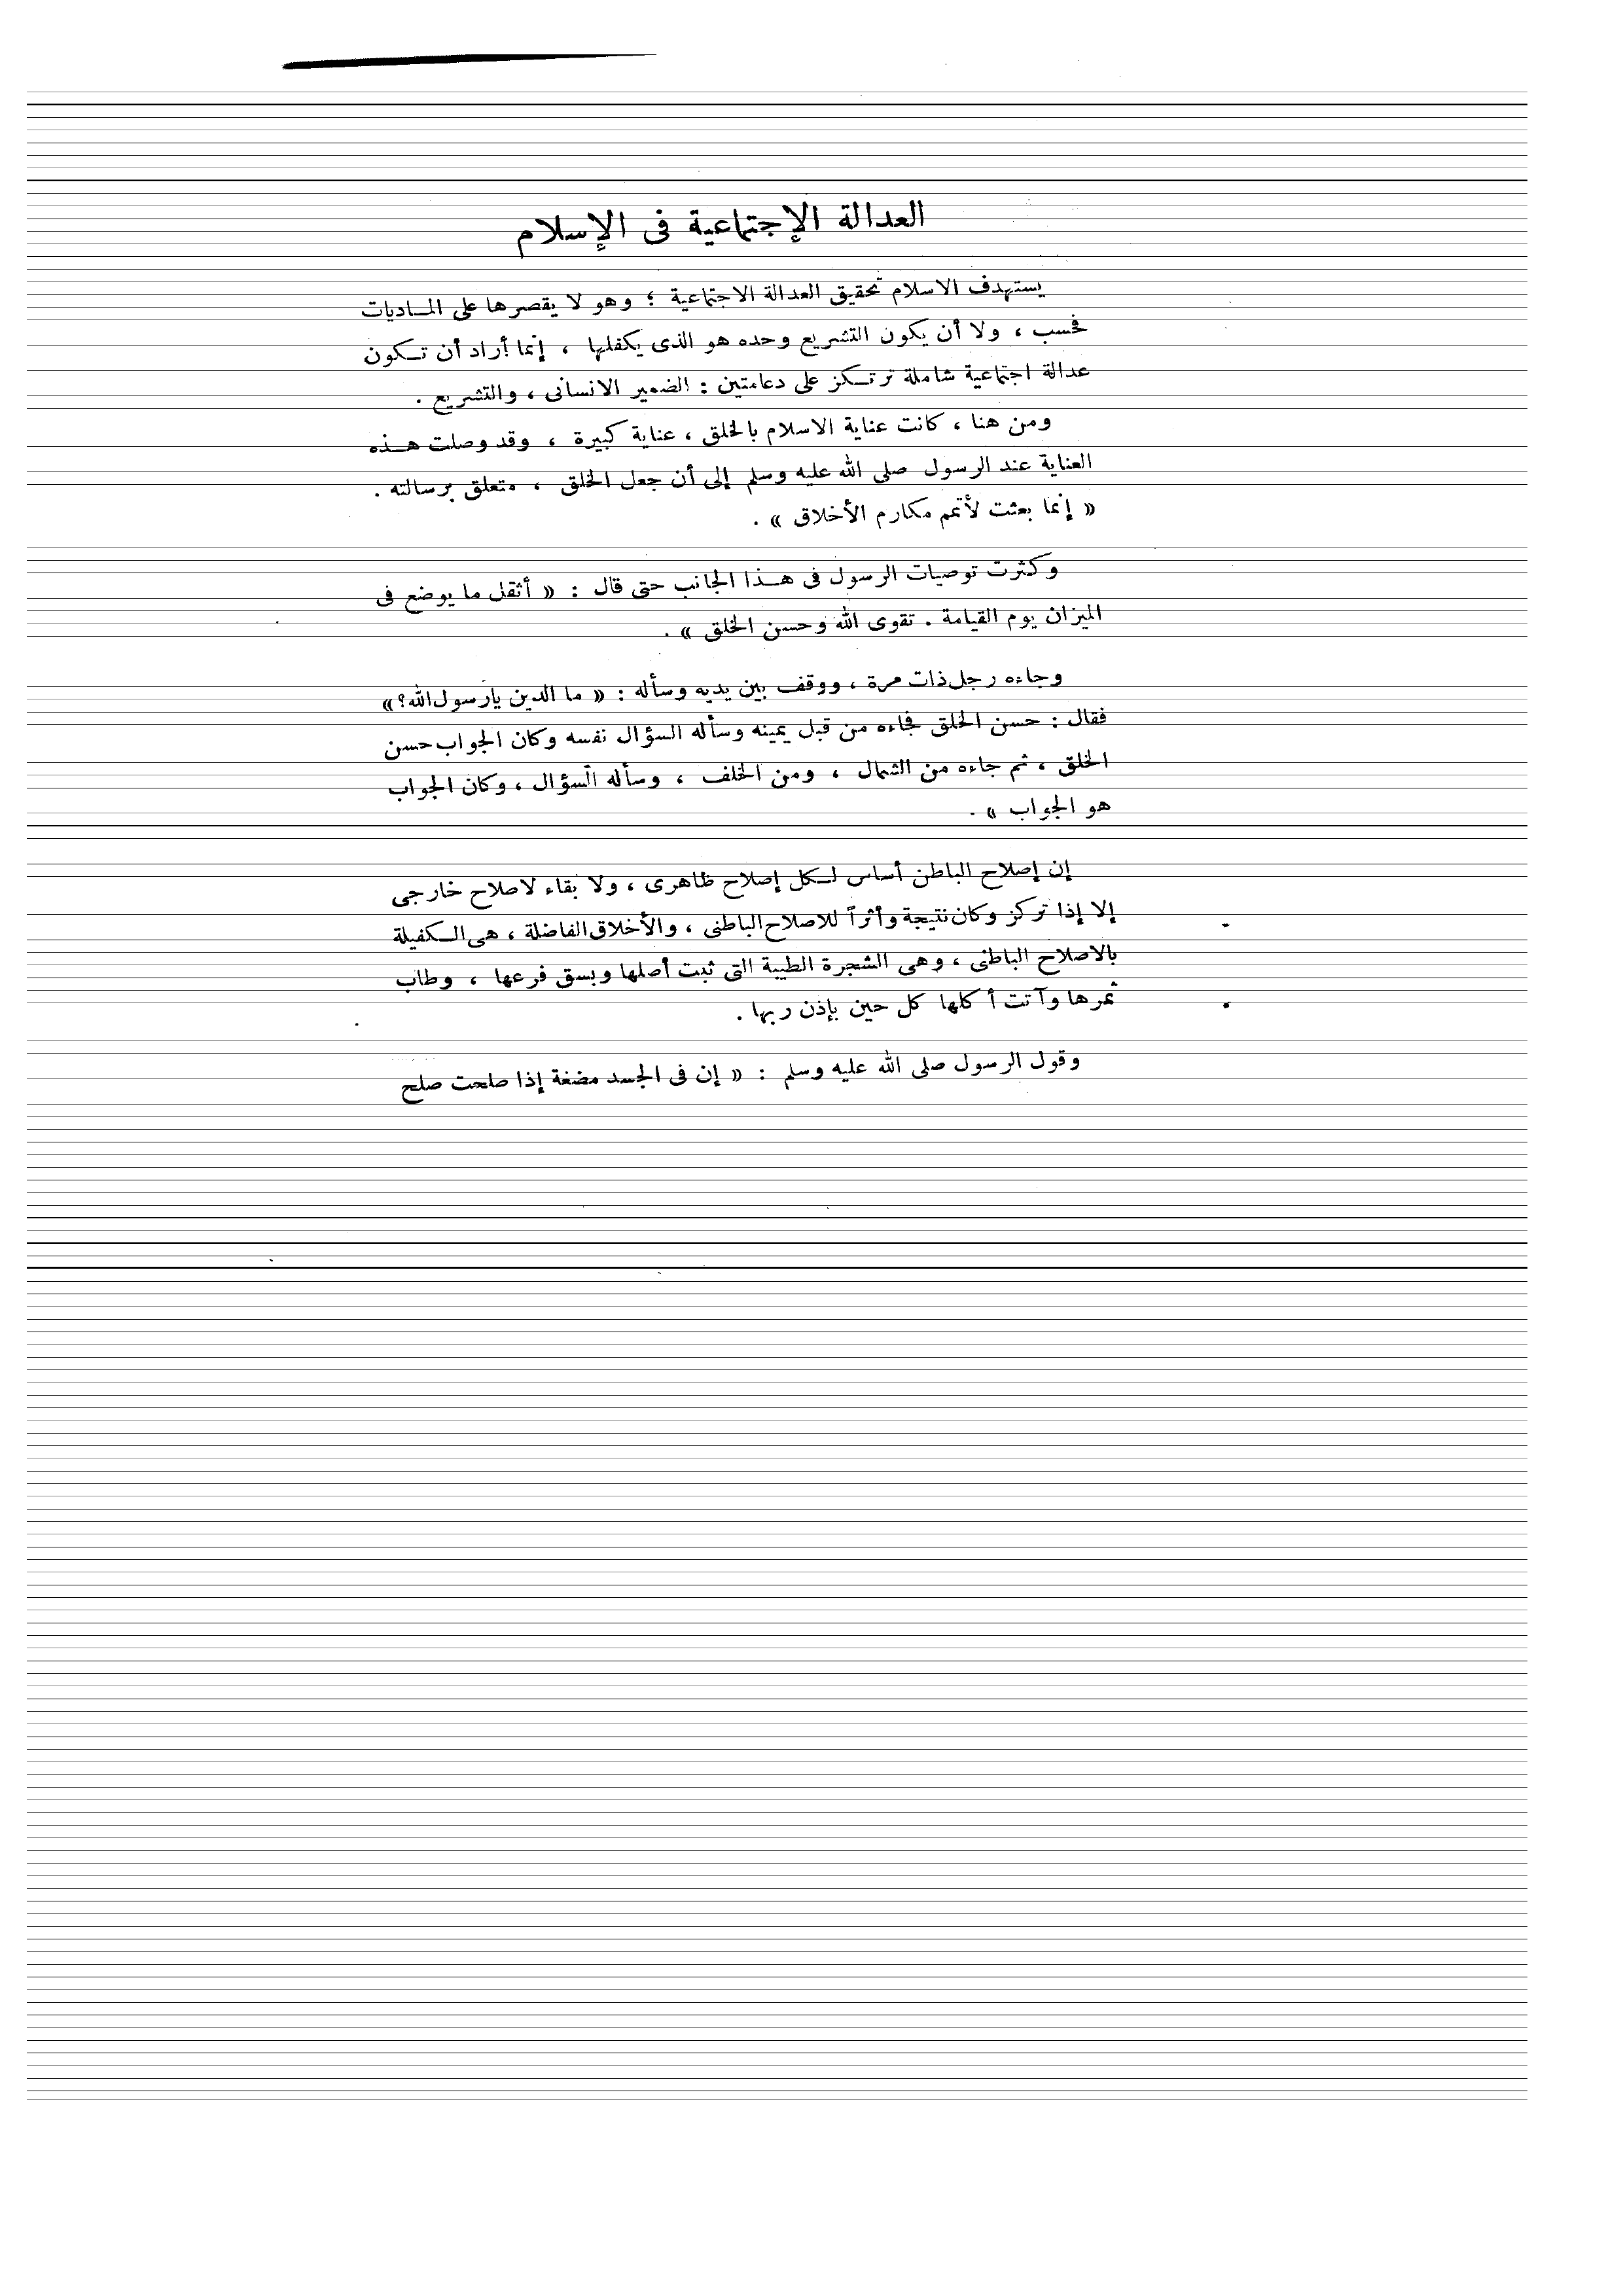 العدالة الإجتماعية فى الإسلام
يستهدف الاسلام تحقيق العدالة الاجتماعية ؛ وهو لا يقصرها على المـاديات
فحسب ، ولا أن يكون التشريع وحده هو الذى يكفلها ، إنما أراد أن تـكون
عدالة اجتماعية شاملة ترتـكز على دعامتين : الضمير الانسانى ، والتشريع .
ومن هنا ، كانت عناية الاسلام بالخلق ، عناية كبيرة ، وقد وصلت هـذه
العناية عند الرسول صلى الله عليه وسلم إلى أن جعل الخلق ، متعلق برسالته .
« إنما بعثت لأتمم مكارم الأخلاق » .
وكثرت توصيات الرسول فى هـذا الجانب حتى قال : « أثقل ما يوضع فى
الميزان يوم القيامة . تقوى الله وحسن الخلق » .
وجاءه رجل ذات مرة ، ووقف بين يديه وسأله : « ما الدين يارسول الله؟ »
فقال : حسن الخلق فجاءه من قبل يمينه وسأله السؤال نفسه وكان الجواب حسن
الخلق ، ثم جاءه من الشمال ، ومن الخلف ، وسأله السؤال ، وكان الجواب
هو الجواب » .
إن إصلاح الباطن أساس لـكل إصلاح ظاهرى ، ولا بقاء لاصلاح خارجى
إلا إذا تركز وكان نتيجة وأثراً للاصلاح الباطنى ، والأخلاق الفاضلة ، هى الـكفيلة
بالاصلاح الباطنى ، وهى الشجرة الطيبة التى ثبت أصلها وبسق فرعها ، وطاب
ثمرها وآتت أكلها كل حين بإذن ربها .
وقول الرسول صلى الله عليه وسلم : « إن فى الجسد مضغة إذا صلحت صلح